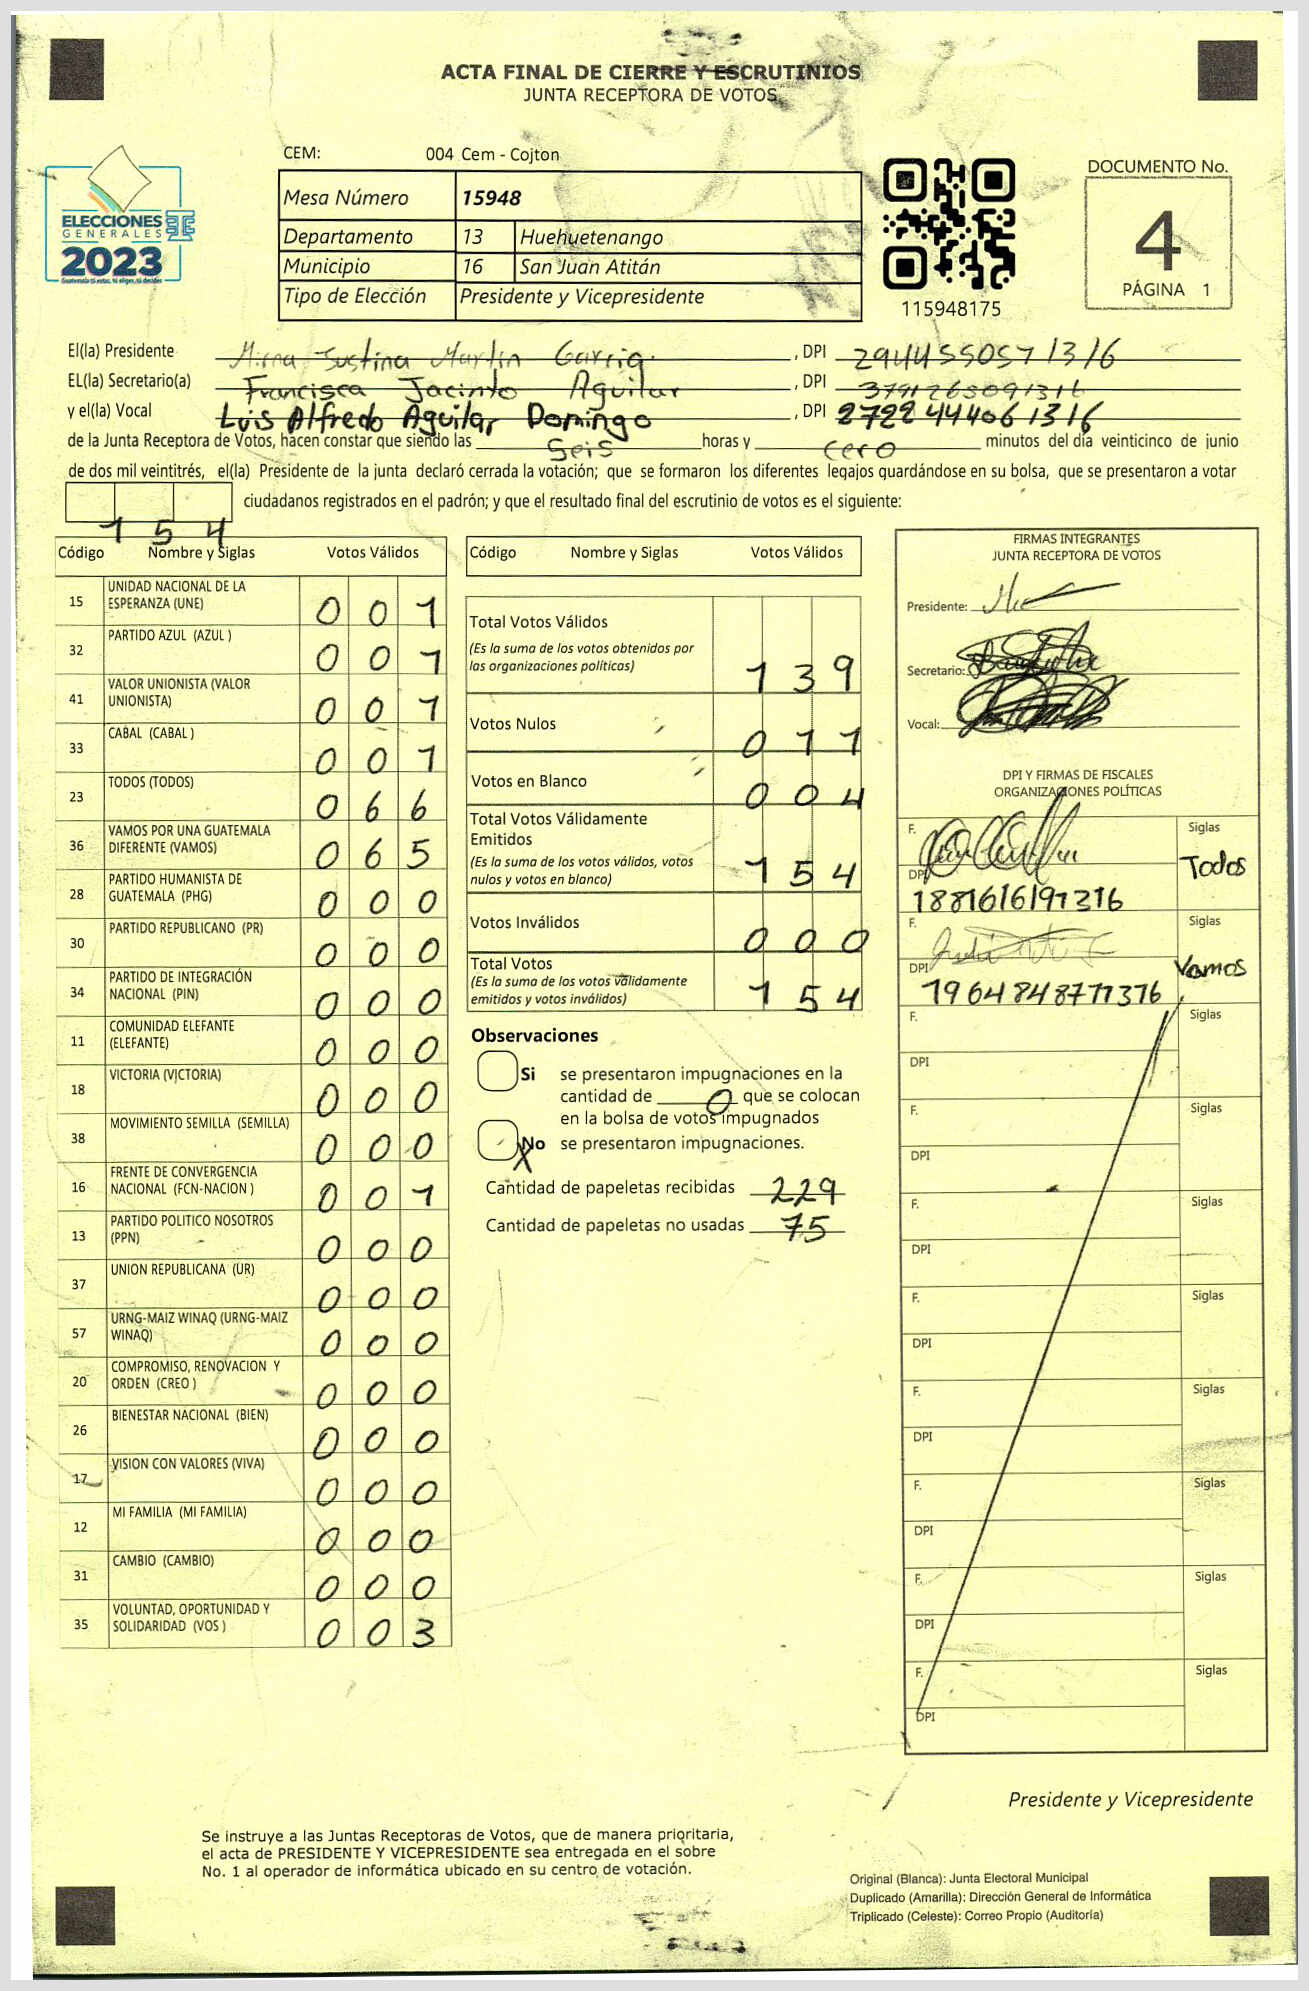 ACTA FINAL DE CIERRE Y ESCRUTINIOS
JUNTA RECEPTORA DE VOTOS
CEM: 004 Cem - Cojton
ELECCIONES
GENERALES
2023
Mesa Número 15948
Departamento 13 Huehuetenango
Municipio 16 San Juan Atitán
Tipo de Elección Presidente y Vicepresidente
115948175
DOCUMENTO No.
4
PÁGINA 1
El(la) Presidente Mirna Justina Martin Garcia , DPI 2944550571316
EL(la) Secretario(a) Francisca Jacinto Aguilar , DPI 3791265091316
y el(la) Vocal Luis Alfredo Aguilar Domingo , DPI 2722444061316
de la Junta Receptora de Votos, hacen constar que siendo las Seis horas y cero minutos del día veinticinco de junio
de dos mil veintitrés, el(la) Presidente de la junta declaró cerrada la votación; que se formaron los diferentes legajos guardándose en su bolsa, que se presentaron a votar
154 ciudadanos registrados en el padrón; y que el resultado final del escrutinio de votos es el siguiente:
Código Nombre y Siglas Votos Válidos
15 UNIDAD NACIONAL DE LA ESPERANZA (UNE) 001
32 PARTIDO AZUL (AZUL ) 001
41 VALOR UNIONISTA (VALOR UNIONISTA) 001
33 CABAL (CABAL ) 001
23 TODOS (TODOS) 066
36 VAMOS POR UNA GUATEMALA DIFERENTE (VAMOS) 065
28 PARTIDO HUMANISTA DE GUATEMALA (PHG) 000
30 PARTIDO REPUBLICANO (PR) 000
34 PARTIDO DE INTEGRACIÓN NACIONAL (PIN) 000
11 COMUNIDAD ELEFANTE (ELEFANTE) 000
18 VICTORIA (VICTORIA) 000
38 MOVIMIENTO SEMILLA (SEMILLA) 000
16 FRENTE DE CONVERGENCIA NACIONAL (FCN-NACION ) 001
13 PARTIDO POLITICO NOSOTROS (PPN) 000
37 UNION REPUBLICANA (UR) 000
57 URNG-MAIZ WINAQ (URNG-MAIZ WINAQ) 000
20 COMPROMISO, RENOVACION Y ORDEN (CREO ) 000
26 BIENESTAR NACIONAL (BIEN) 000
17 VISION CON VALORES (VIVA) 000
12 MI FAMILIA (MI FAMILIA) 000
31 CAMBIO (CAMBIO) 000
35 VOLUNTAD, OPORTUNIDAD Y SOLIDARIDAD (VOS ) 003
Código Nombre y Siglas Votos Válidos
Total Votos Válidos 139
(Es la suma de los votos obtenidos por
las organizaciones políticas)
Votos Nulos 011
Votos en Blanco 004
Total Votos Válidamente
Emitidos 154
(Es la suma de los votos válidos, votos
nulos y votos en blanco)
Votos Inválidos 000
Total Votos 154
(Es la suma de los votos válidamente
emitidos y votos inválidos)
Observaciones
Si se presentaron impugnaciones en la
cantidad de 0 que se colocan
en la bolsa de votos impugnados
X No se presentaron impugnaciones.
Cantidad de papeletas recibidas 229
Cantidad de papeletas no usadas 75
FIRMAS INTEGRANTES
JUNTA RECEPTORA DE VOTOS
Presidente:
Secretario:
Vocal:
DPI Y FIRMAS DE FISCALES
ORGANIZACIONES POLÍTICAS
F. Siglas
Todos
DPI 1881616191316
F. Siglas
Vamos
DPI 1964848771316
F. Siglas
DPI
F. Siglas
DPI
F. Siglas
DPI
F. Siglas
DPI
F. Siglas
DPI
F. Siglas
DPI
F. Siglas
DPI
F. Siglas
DPI
Presidente y Vicepresidente
Se instruye a las Juntas Receptoras de Votos, que de manera prioritaria,
el acta de PRESIDENTE Y VICEPRESIDENTE sea entregada en el sobre
No. 1 al operador de informática ubicado en su centro de votación.
Original (Blanca): Junta Electoral Municipal
Duplicado (Amarilla): Dirección General de Informática
Triplicado (Celeste): Correo Propio (Auditoría)